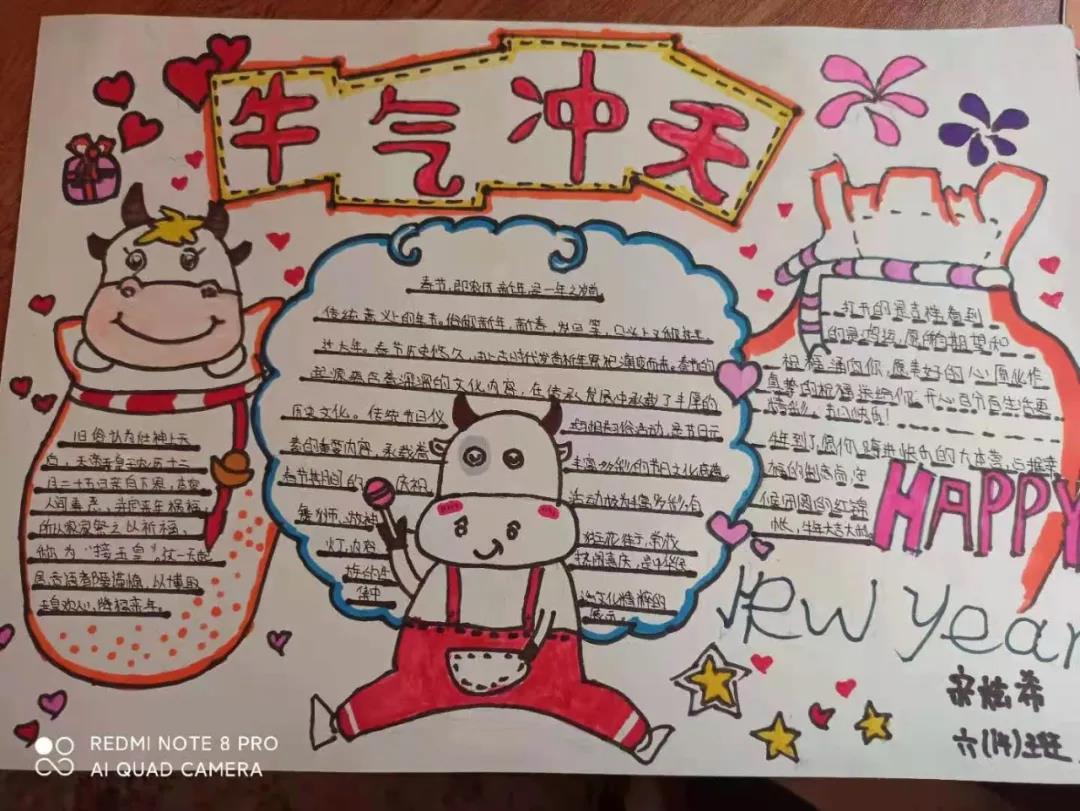 牛气冲天
春节,即农历新年,是一年之岁首
传统意义上的年节。俗称新年、新春、岁旦等,口头上又称
过大年。春节历史悠久,由上古时代岁首祈年祭祀演变而来。春节的
起源蕴含着深邃的文化内容,在传承发展中承载了丰厚的
历史文化。传统节日仪
式和相关习俗活动,是节日元
素的重要内容,承载着
丰富多彩的节日文化底蕴
春节期间的 庆祝
活动极为丰富多彩,有
舞狮、
灯,内容
热闹喜庆,是中华民
族的生
集中
文化精粹的
展示。
旧俗认为
日,天帝玉皇于农历十二
月二十五日亲自下界,查察
人间善恶,并定来年祸福,
所以家家祭之以祈福,
称为“接玉皇”。这一天起
居言语都要谨慎,以博取
玉皇欢心,降福来年。
打开的是吉祥,看到
的是鸿运,愿的期望和
祝福涌向你,愿美好的心愿化作
真挚的祝福送给你,开心百分百生活更
精彩。春节快乐!
牛年到了,愿你跨进快乐的大本营,与
牛年大吉大
HAPPY
New Year
宋炫希
六(14)班
REDMI NOTE 8 PRO
AI QUAD CAMERA